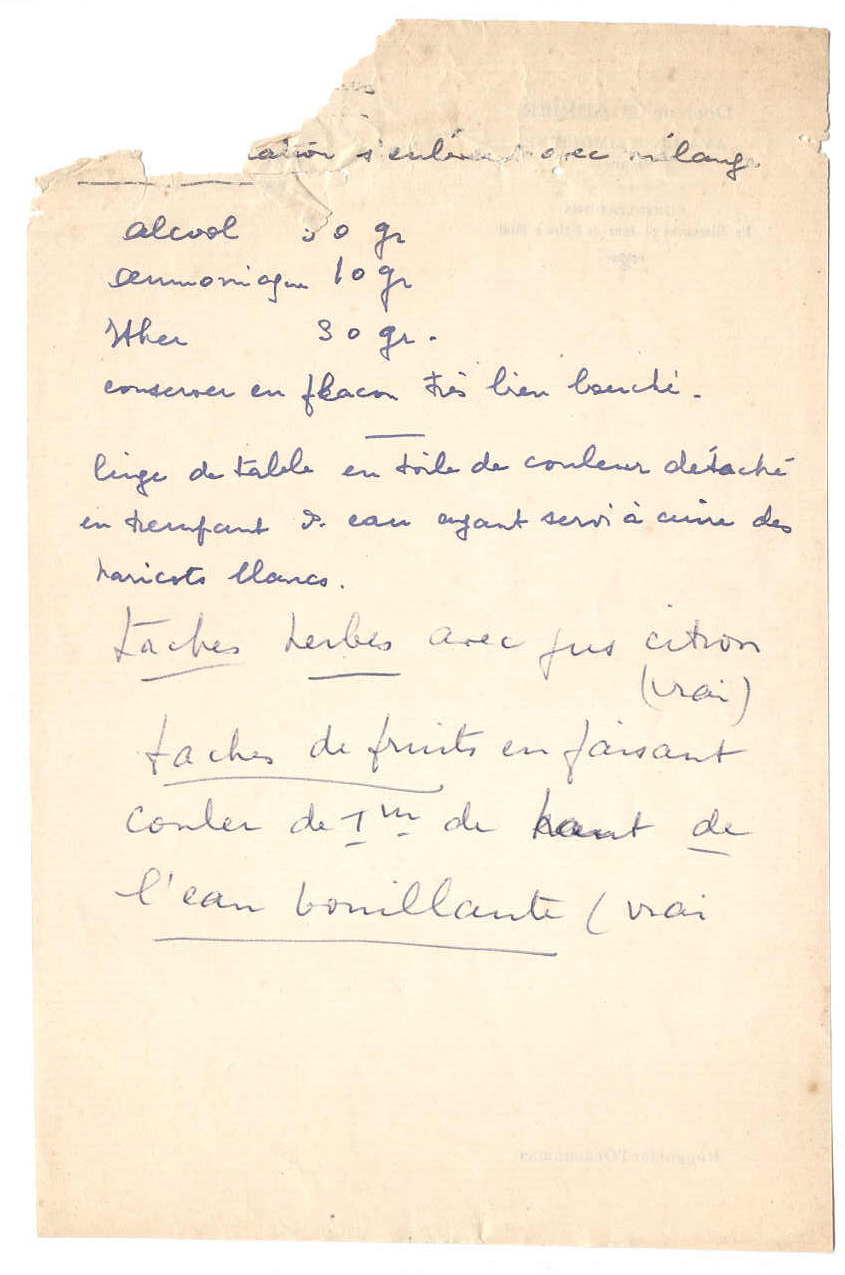 s'enlèvent avec mélange
alcool 30 gr
ammoniaque 10 gr
Ether 30 gr.
conserver en flacon très bien bouché.
linge de table en toile de couleur détaché
en trempant ds. eau ayant servi à cuire des
haricots blancs.
taches herbes avec jus citron
(vrai)
taches de fruits en faisant
couler de 1m de haut de
l'eau bouillante (vrai